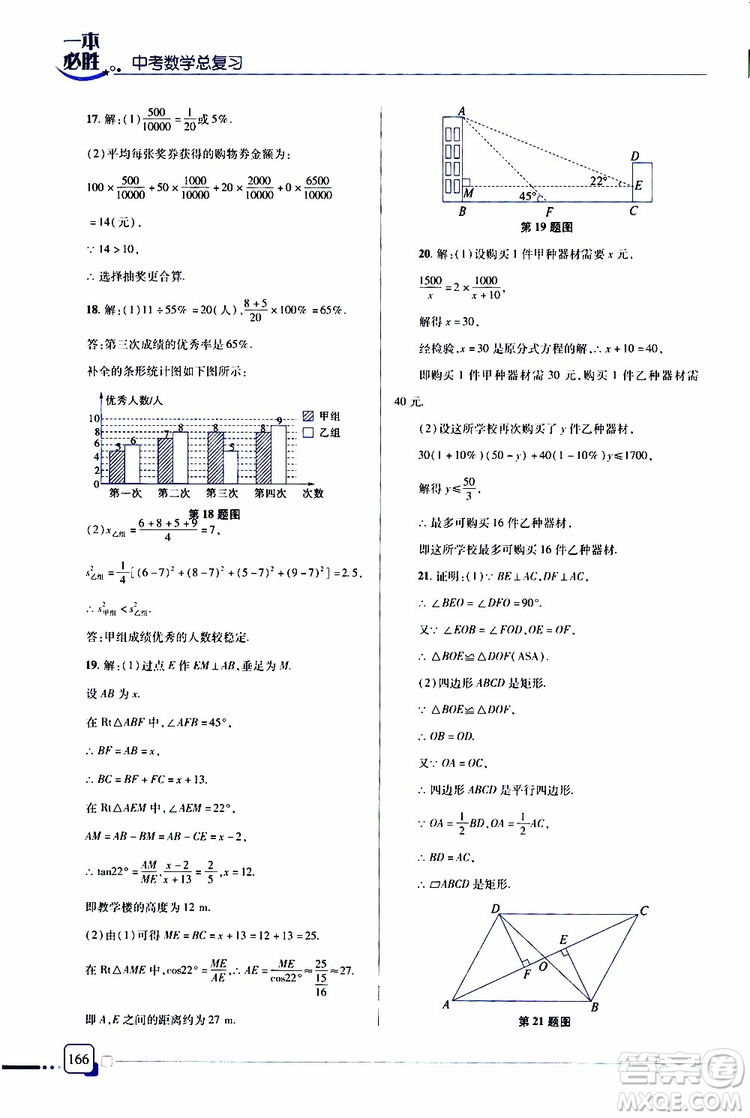 一本
必胜
中考数学总复习
17. 解:(1) 500/10000 = 1/20 或 5%.
(2)平均每张奖券获得的购物券金额为:
100 × 500/10000 + 50 × 1000/10000 + 20 × 2000/10000 + 0 × 6500/10000
= 14(元),
∵ 14 > 10,
∴ 选择抽奖更合算.
18. 解:(1)11 ÷ 55% = 20(人), (8+5)/20 × 100% = 65%.
答:第三次成绩的优秀率是 65%.
补全的条形统计图如下图所示:
优秀人数/人
10
8
6
4
2
0
5 6 7 8 8 5 8 9
甲组
乙组
第一次 第二次 第三次 第四次 次数
第 18 题图
(2) x乙组 = (6+8+5+9)/4 = 7,
s²乙组 = 1/4[(6-7)² + (8-7)² + (5-7)² + (9-7)²] = 2.5,
∴ s²甲组 < s²乙组.
答:甲组成绩优秀的人数较稳定.
19. 解:(1)过点 E 作 EM⊥AB,垂足为 M.
设 AB 为 x.
在 Rt△ABF 中,∠AFB = 45°,
∴ BF = AB = x,
∴ BC = BF + FC = x + 13.
在 Rt△AEM 中,∠AEM = 22°,
AM = AB - BM = AB - CE = x - 2,
∴ tan22° = AM/ME, (x-2)/(x+13) = 2/5, x = 12.
即教学楼的高度为 12 m.
(2)由(1)可得 ME = BC = x + 13 = 12 + 13 = 25.
在 Rt△AME 中,cos22° = ME/AE, ∴ AE = ME/cos22° ≈ 25/(15/16) ≈ 27.
即 A,E 之间的距离约为 27 m.
A
D
22° E
M
45°
B F C
第 19 题图
20. 解:(1)设购买 1 件甲种器材需要 x 元,
1500/x = 2 × 1000/(x+10),
解得 x = 30,
经检验,x = 30 是原分式方程的解,∴ x + 10 = 40.
即购买 1 件甲种器材需 30 元,购买 1 件乙种器材需
40 元.
(2)设这所学校再次购买了 y 件乙种器材,
30(1 + 10%)(50 - y) + 40(1 - 10%)y ≤ 1700,
解得 y ≤ 50/3,
∴ 最多可购买 16 件乙种器材,
即这所学校最多可购买 16 件乙种器材.
21. 证明:(1)∵ BE⊥AC,DF⊥AC,
∴ ∠BEO = ∠DFO = 90°.
又∵ ∠EOB = ∠FOD,OE = OF,
∴ △BOE≌△DOF(ASA).
(2)四边形 ABCD 是矩形.
∵ △BOE≌△DOF,
∴ OB = OD.
又∵ OA = OC,
∴ 四边形 ABCD 是平行四边形.
∵ OA = 1/2 BD,OA = 1/2 AC,
∴ BD = AC,
∴ ▱ABCD 是矩形.
D C
E
F O
A B
第 21 题图
166
答案圈
MXQE.COM